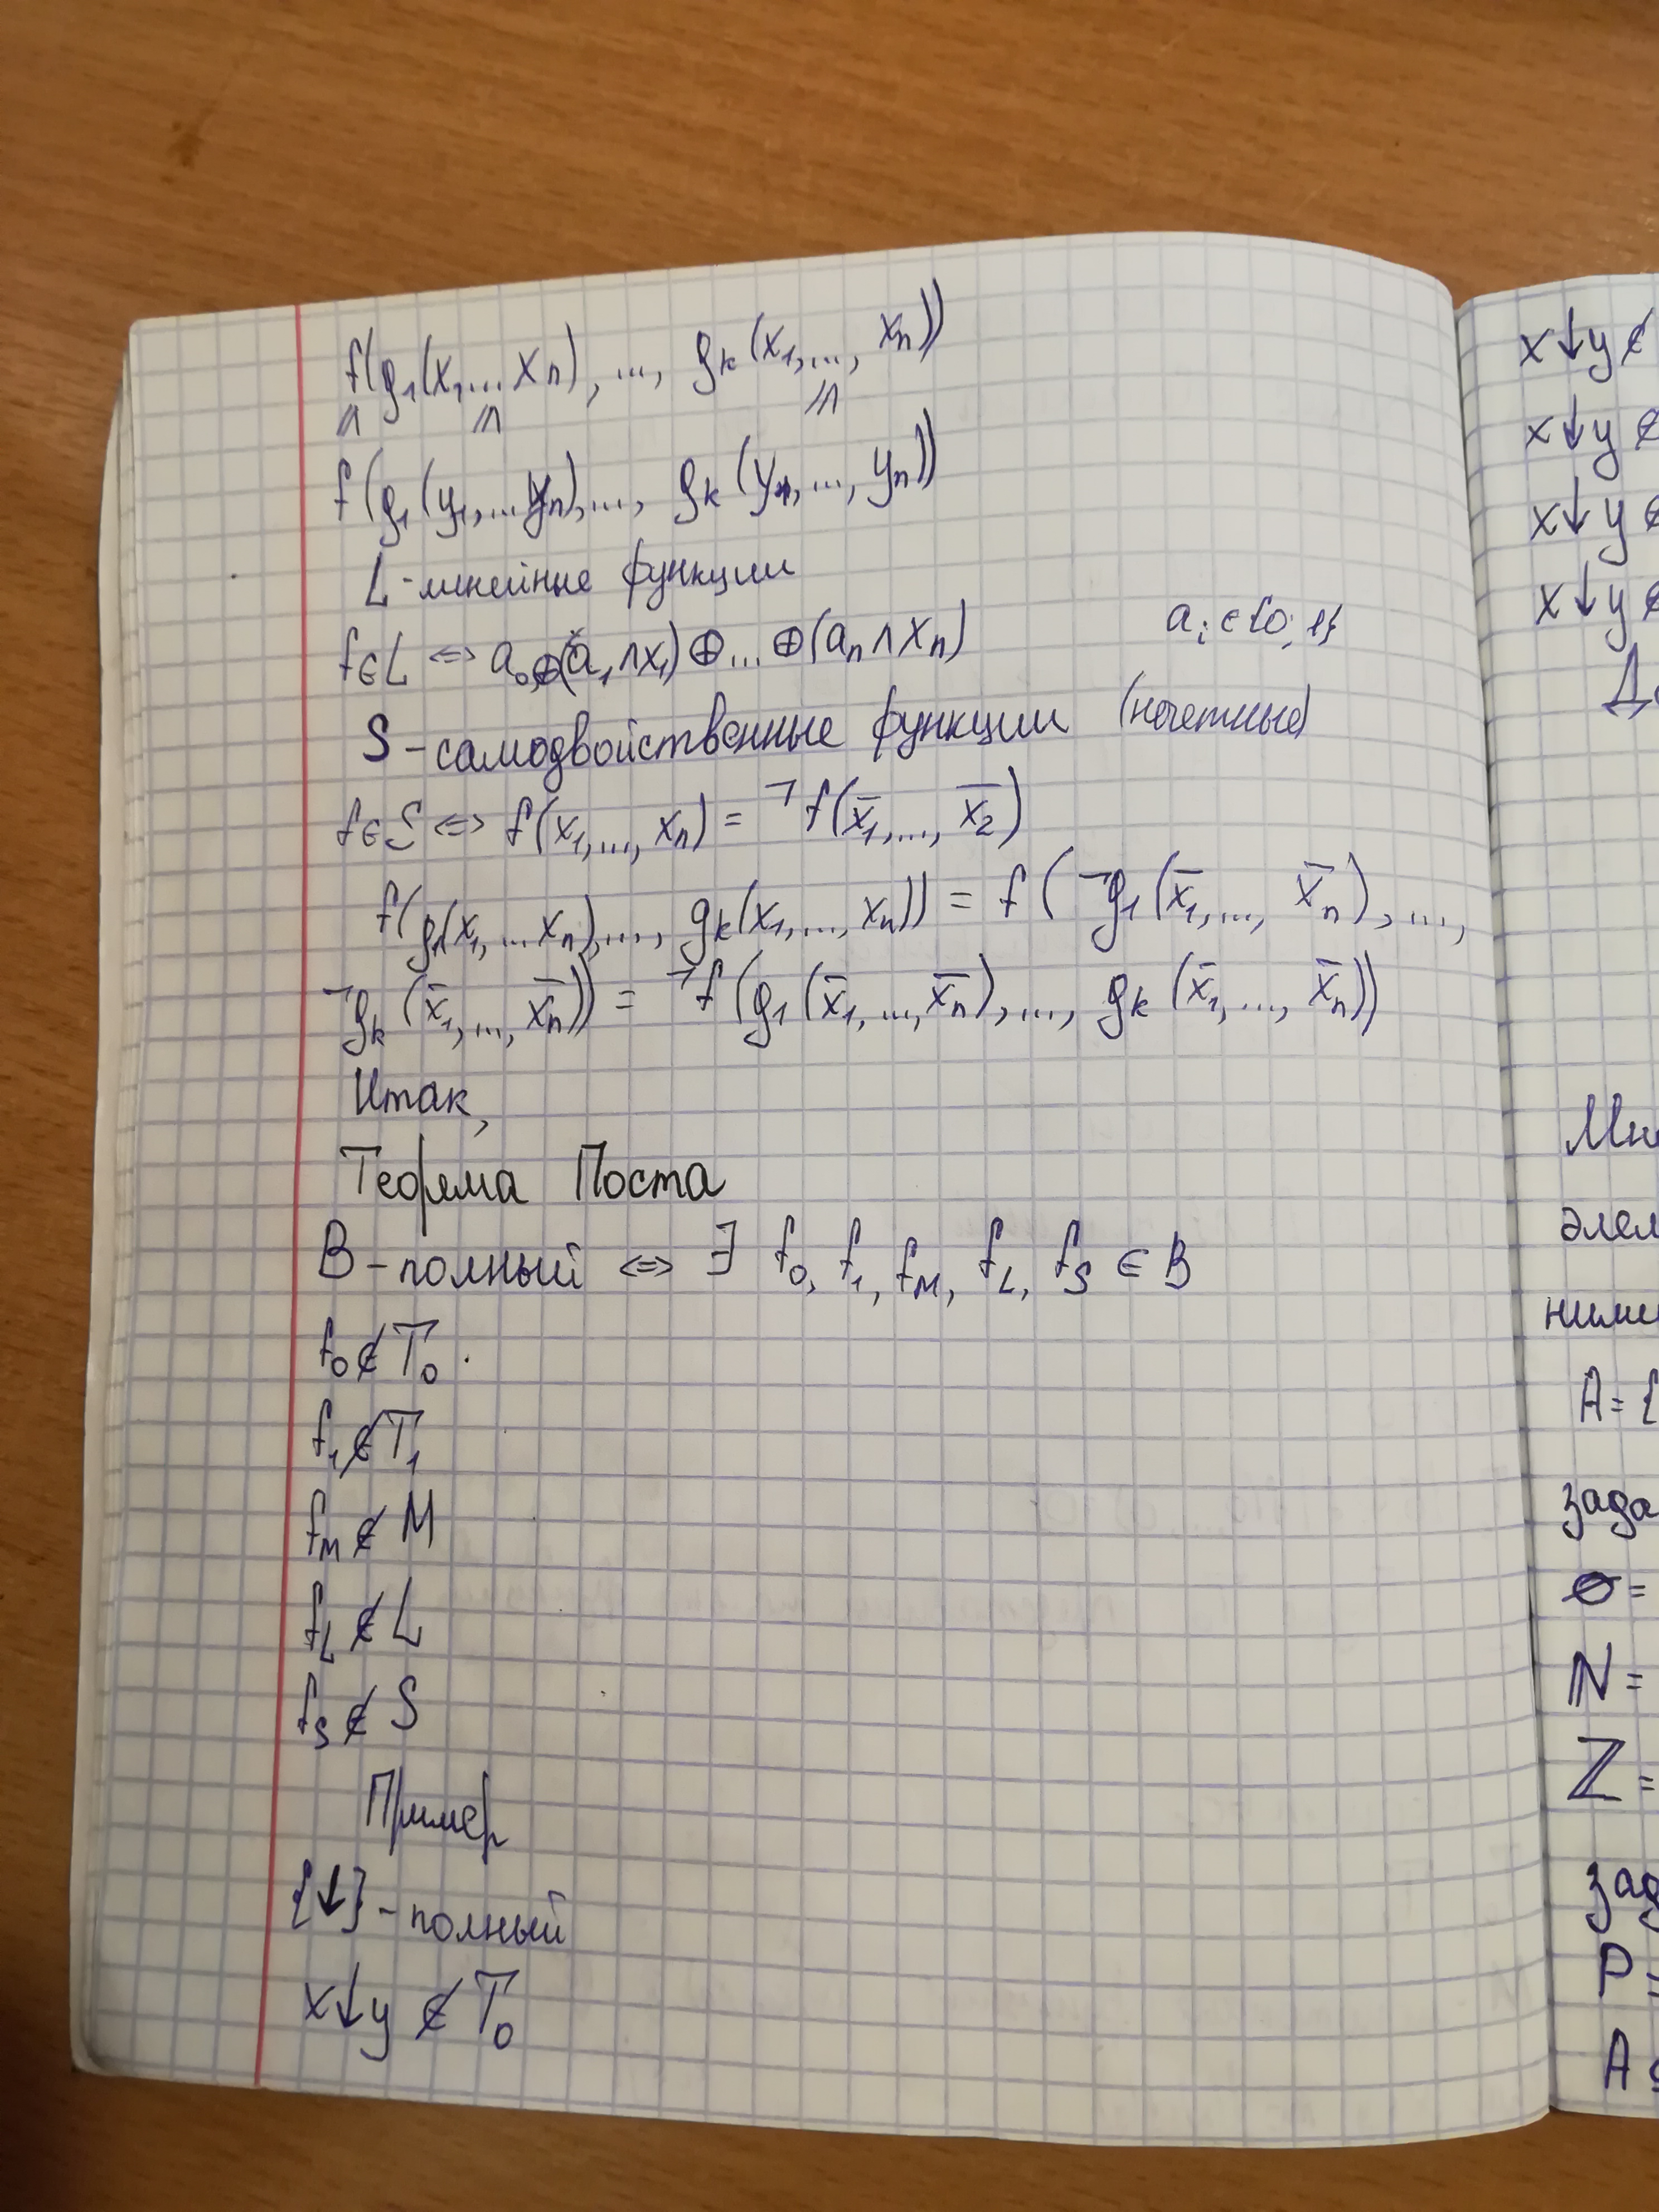 f(g₁(x₁,...xₙ),..., gₖ(x₁,..., xₙ))
/\ /\ /\
f(g₁(y₁,...yₙ),..., gₖ(y₁,..., yₙ))
L-линейные функции
f∈L ⇔ a₀⊕(a₁∧x₁)⊕...⊕(aₙ∧xₙ) aᵢ∈{0;1}
S-самодвойственные функции (нечетные)
f∈S ⇔ f(x₁,..., xₙ) = ¬f(x̅₁,..., x̅₂)
f(g₁(x₁,...xₙ),..., gₖ(x₁,..., xₙ)) = f(¬g₁(x̅₁,..., x̅ₙ),...,
¬gₖ(x̅₁,..., x̅ₙ)) = ¬f(g₁(x̅₁,...,x̅ₙ),..., gₖ(x̅₁,..., x̅ₙ))
Итак,
Теорема Поста
B-полный ⇔ ∃ f₀, f₁, f_M, f_L, f_S ∈ B
f₀∉T₀.
f₁∉T₁
f_M∉M
f_L∉L
f_S∉S
Пример
{↓}-полный
x↓y∉T₀
x↓y∉
x↓y∉
x↓y∉
x↓y∉
A={
зада
∅=
ℕ=
ℤ=
P=
A